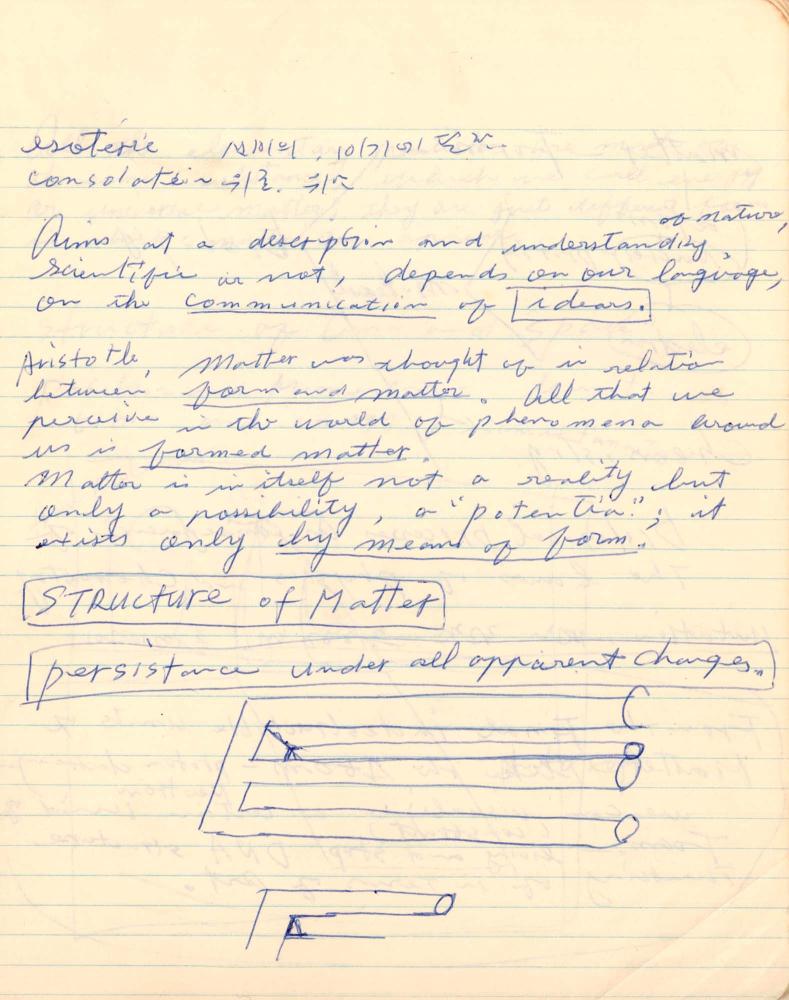 esoteric
consolation 위로.
of nature,
Aims at a description and understanding
scientific or not, depends on our language,
on the communication of idears.
Aristotle, Matter was thought of in relation
between form and matter. All that we
perceive in the world of phenomena around
us is formed matter.
Matter is in itself not a reality but
only a possibility, a "potentia"; it
exists only by means of form.
STRUCTURE of Matter
persistance under all apparent changes.